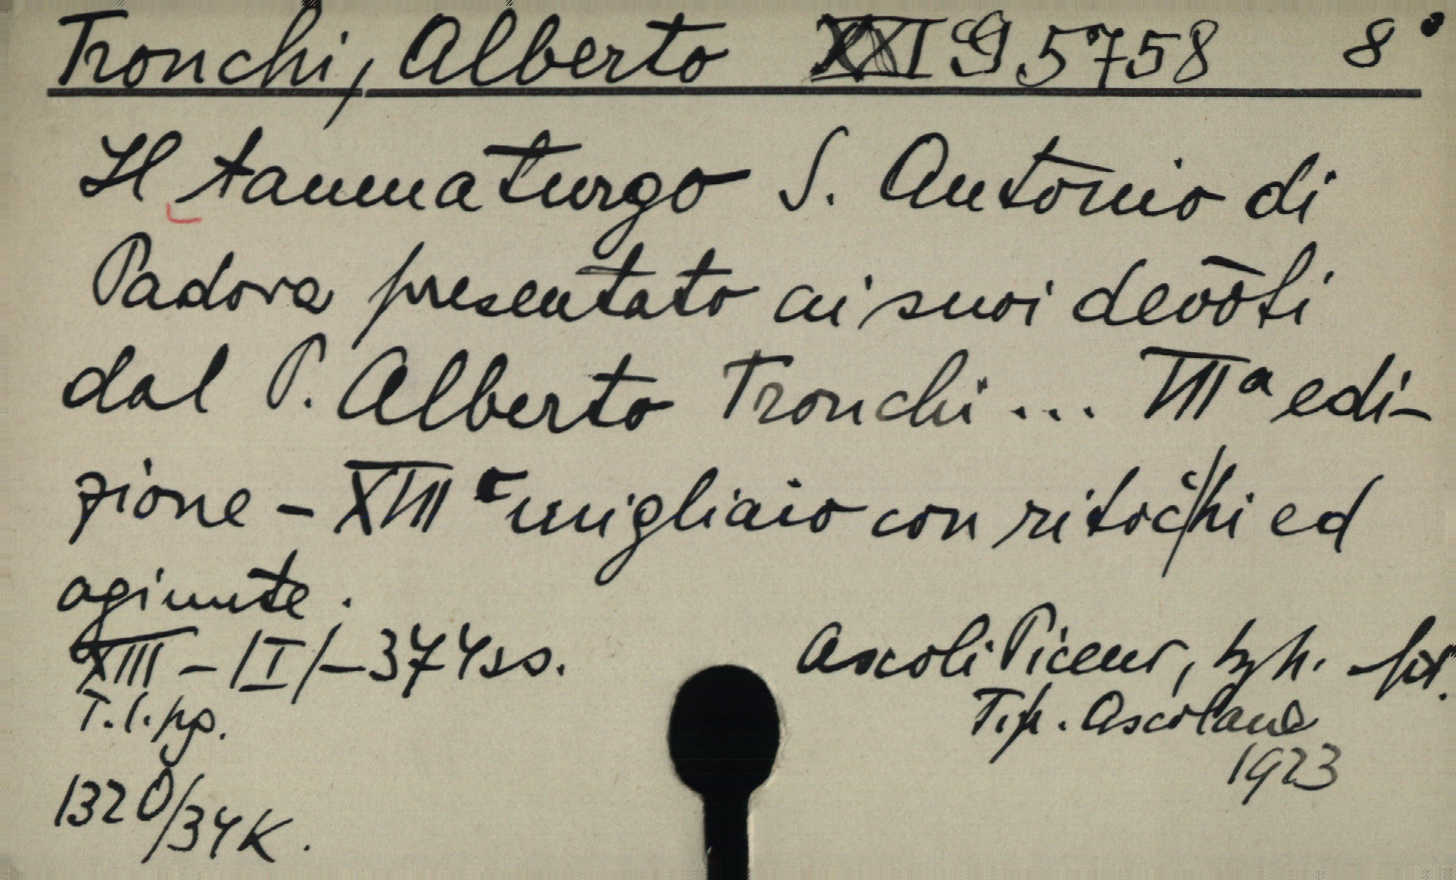 Tronchi, Alberto XXI G 5758 8°
Il taumaturgo S. Antonio di
Padova presentato ai suoi devōti
dal P. Alberto Tronchi... IIIª edi-
zione - XIII migliaio con ritocchi ed
agiunte.
XIII - /I/ - 374 ss.
Ascoli Piceno,
T.l. pg.
Tip. Ascolana
1923
132 O/34 K.